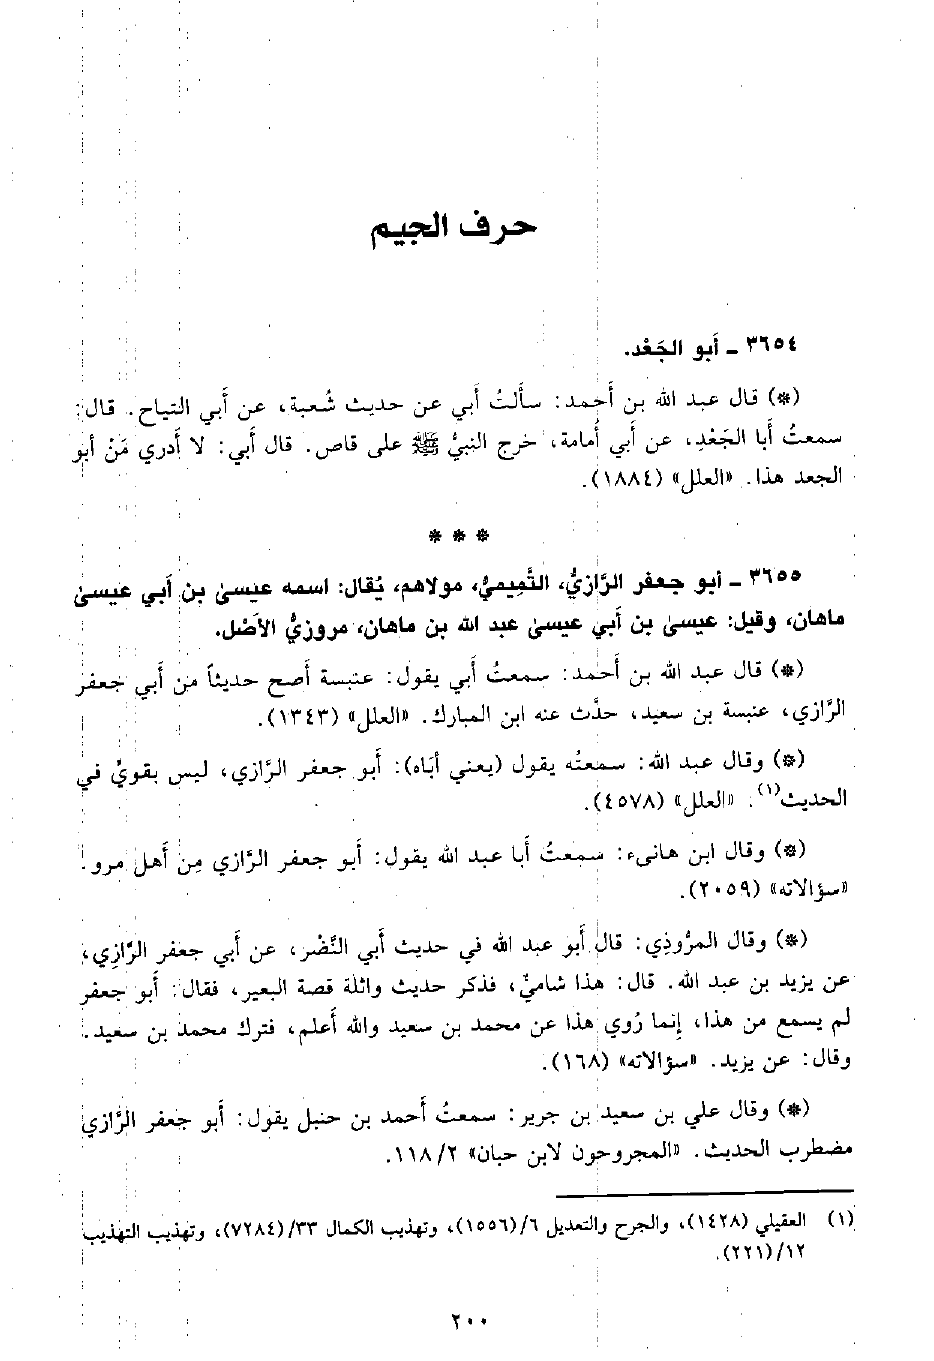 حرف الجيم
٣٦٥٤ ـ أبو الجَعْد.
(*) قال عبد الله بن أحمد: سألتُ أبي عن حديث شُعبة، عن أبي التياح. قال:
سمعتُ أبا الجَعْدِ، عن أبي أُمامة، خرج النبيُّ ﷺ على قاص. قال أبي: لا أدري مَنْ أبو
الجعد هذا. «العلل» (١٨٨٤).
* * *
٣٦٥٥ ـ أبو جعفر الرَّازيُّ، التَّمِيميُّ، مولاهم، يُقال: اسمه عيسىٰ بن أبي عيسىٰ
ماهان، وقيل: عيسىٰ بن أبي عيسىٰ عبد الله بن ماهان، مروزيُّ الأصْل.
(*) قال عبد الله بن أحمد: سمعتُ أبي يقول: عنبسة أصح حديثاً من أبي جعفر
الرَّازي، عنبسة بن سعيد، حدَّث عنه ابن المبارك. «العلل» (١٣٤٣).
(*) وقال عبد الله: سمعتُه يقول (يعني أباه): أبو جعفر الرَّازي، ليس بقويٍّ في
الحديث(١). «العلل» (٤٥٧٨).
(*) وقال ابن هانىء: سمعتُ أبا عبد الله يقول: أبو جعفر الرَّازي مِن أهل مرو.
«سؤالاته» (٢٠٥٩).
(*) وقال المرُّوذِي: قال أبو عبد الله في حديث أبي النَّضْر، عن أبي جعفر الرَّازِي،
عن يزيد بن عبد الله. قال: هذا شاميٌّ، فذكر حديث واثلة قصة البعير، فقال: أبو جعفر
لم يسمع من هذا، إنما رُوي هذا عن محمد بن سعيد والله أعلم، فترك محمد بن سعيد.
وقال: عن يزيد. «سؤالاته» (١٦٨).
(*) وقال علي بن سعيد بن جرير: سمعتُ أحمد بن حنبل يقول: أبو جعفر الرَّازي
مضطرب الحديث. «المجروحون لابن حبان» ١١٨/٢.
(١) العقيلي (١٤٢٨)، والجرح والتعديل ٦/(١٥٥٦)، وتهذيب الكمال ٣٣/(٧٢٨٤)، وتهذيب التهذيب
١٢/(٢٢١).
٢٠٠